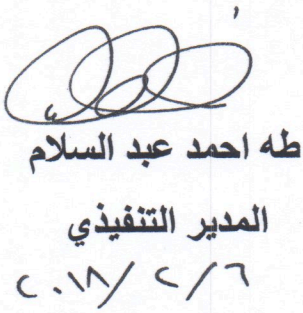 طه احمد عبد السلام
المدير التنفيذي
٢٠١٨/٢/٦